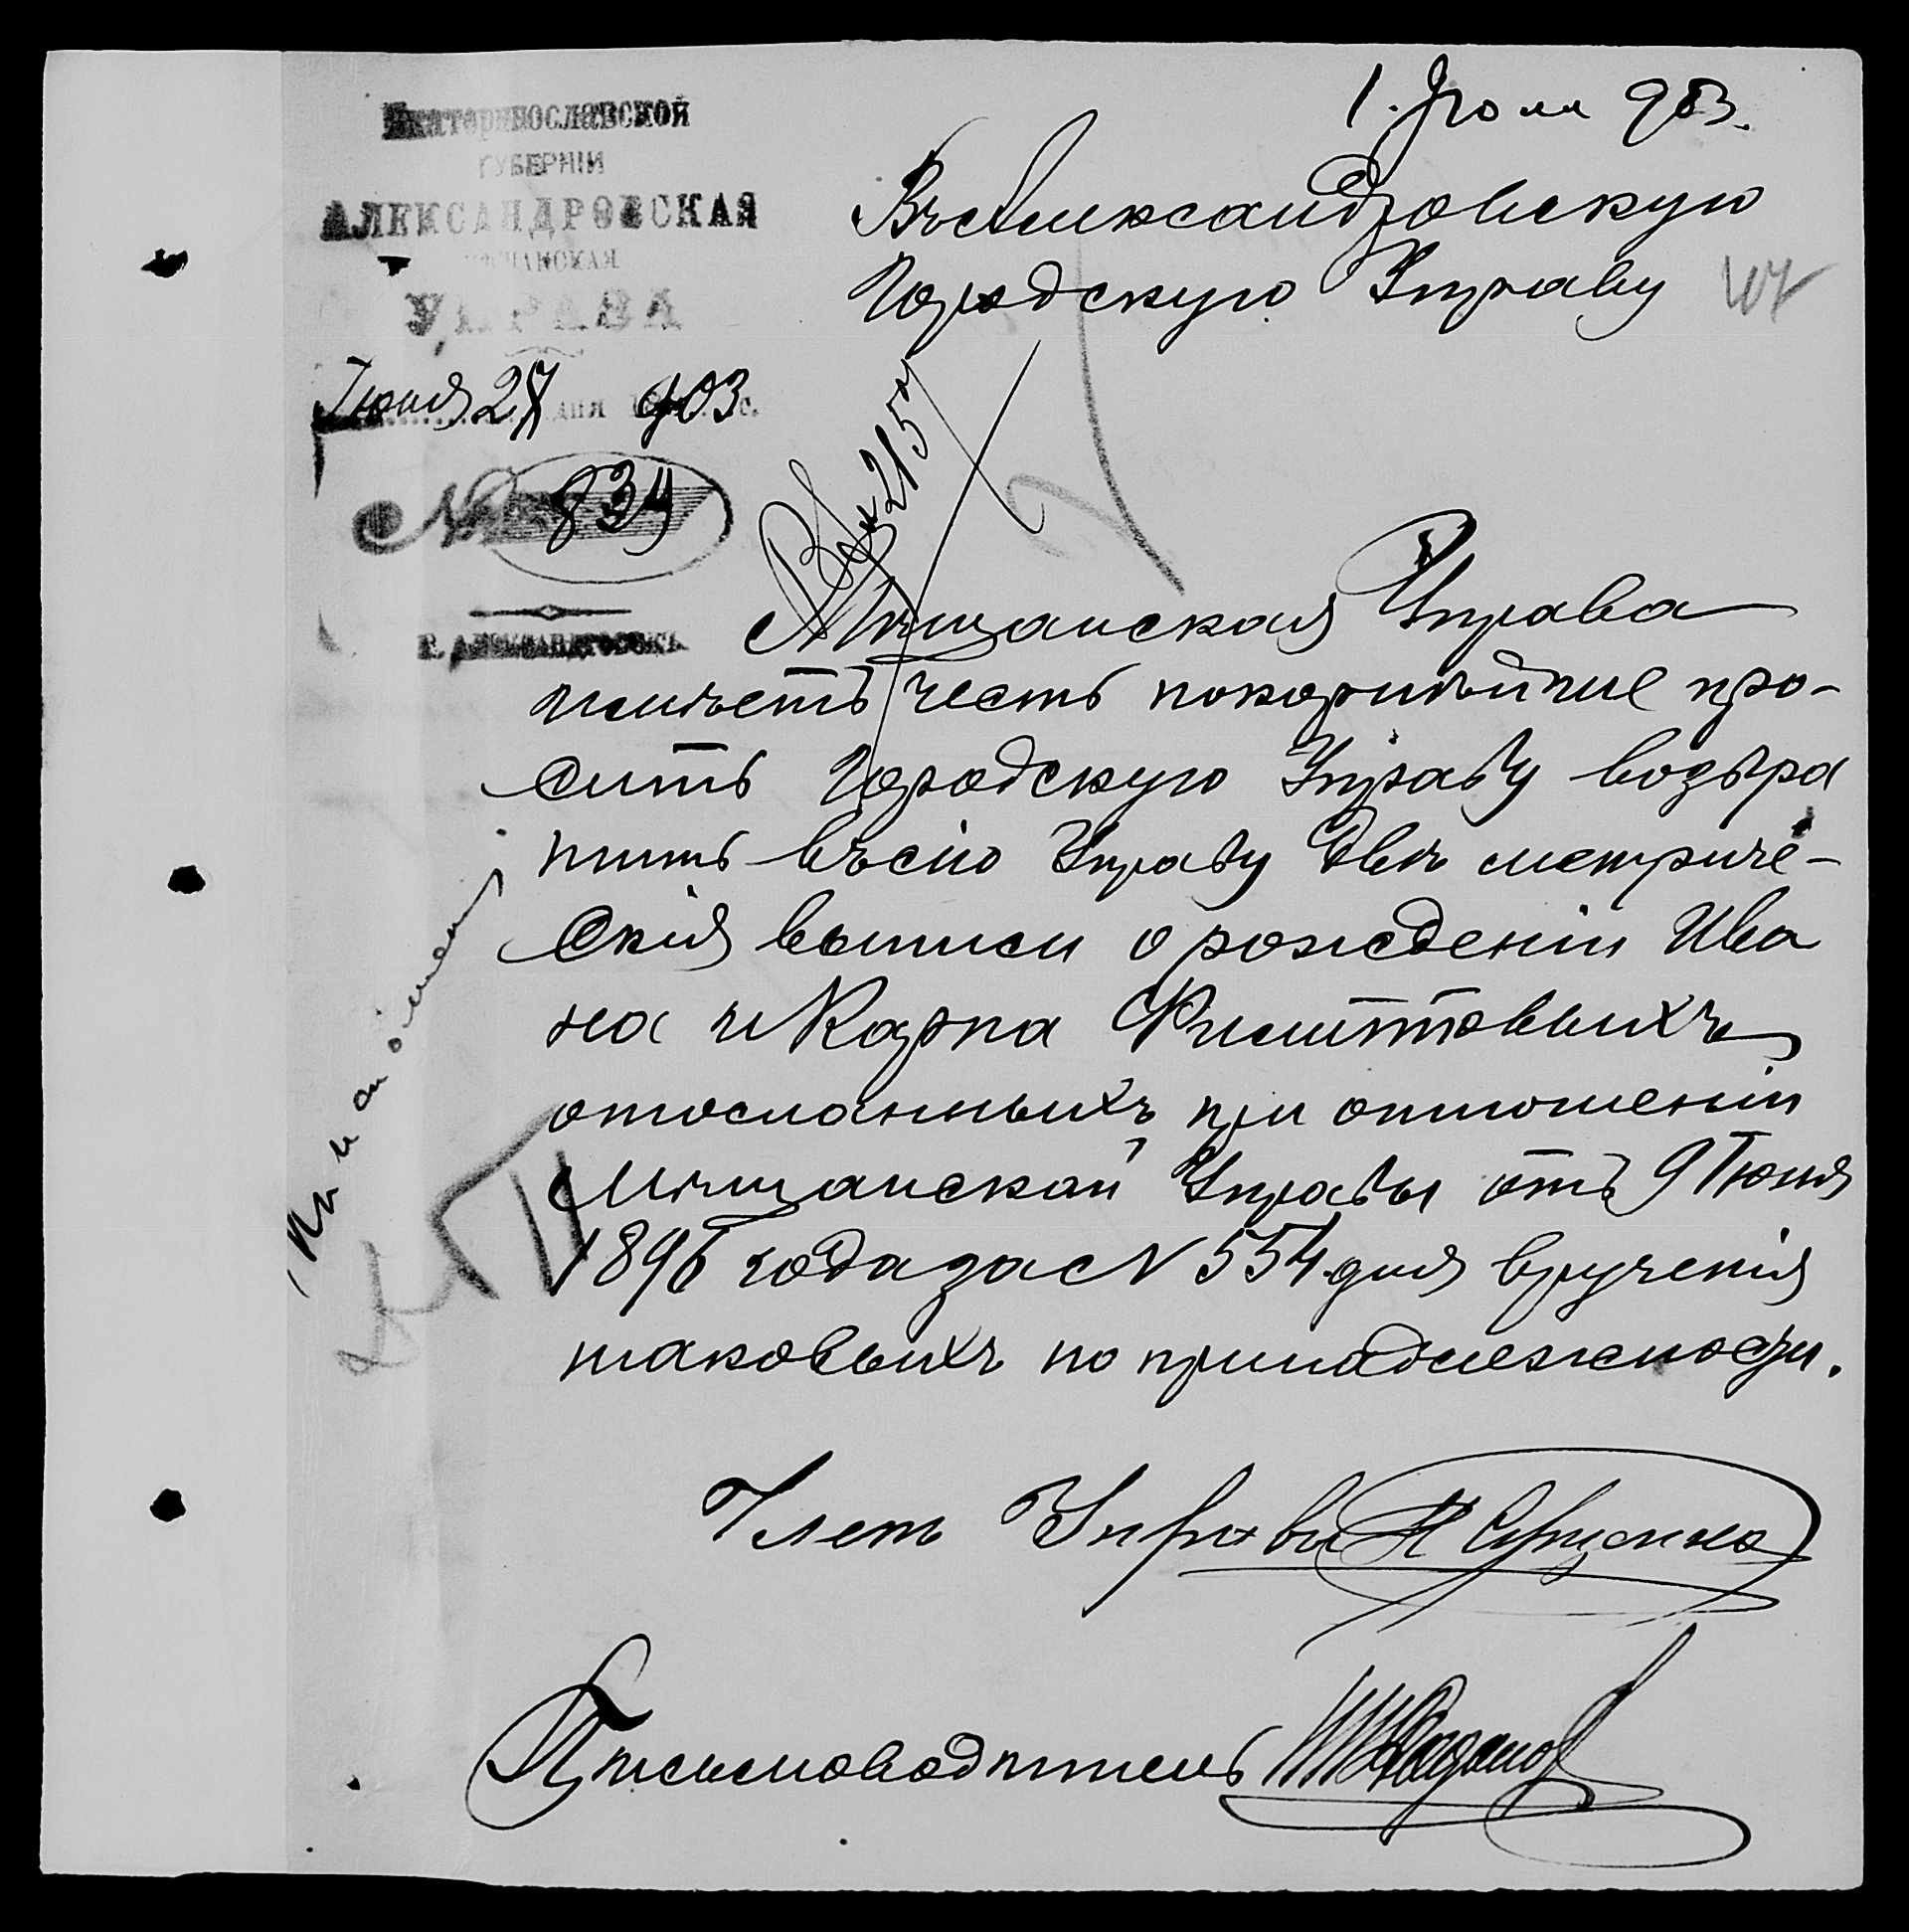 Екатеринославской
ГУБЕРНІИ
АЛЕКСАНДРОВСКАЯ
МѢЩАНСКАЯ
УПРАВА
Іюня 27 дня 903
№ 834
Г. АЛЕКСАНДРОВСКЪ
1. Июля 903.
Въ Александровскую
Городскую Управу
Вх 2157
Мѣщанская Управа
имѣетъ честь покорнѣйше про-
сить Городскую Управу возвра
тить въ сію Управу две метриче-
скія выписи о рожденіи Ива
на и Карпа Филиттовыхъ
отосланныхъ при отношеніи
Мѣщанской Управы отъ 9 Іюня
1896 года за № 554 для врученія
таковыхъ по принадлежности.
Членъ Управы
Письмоводитель